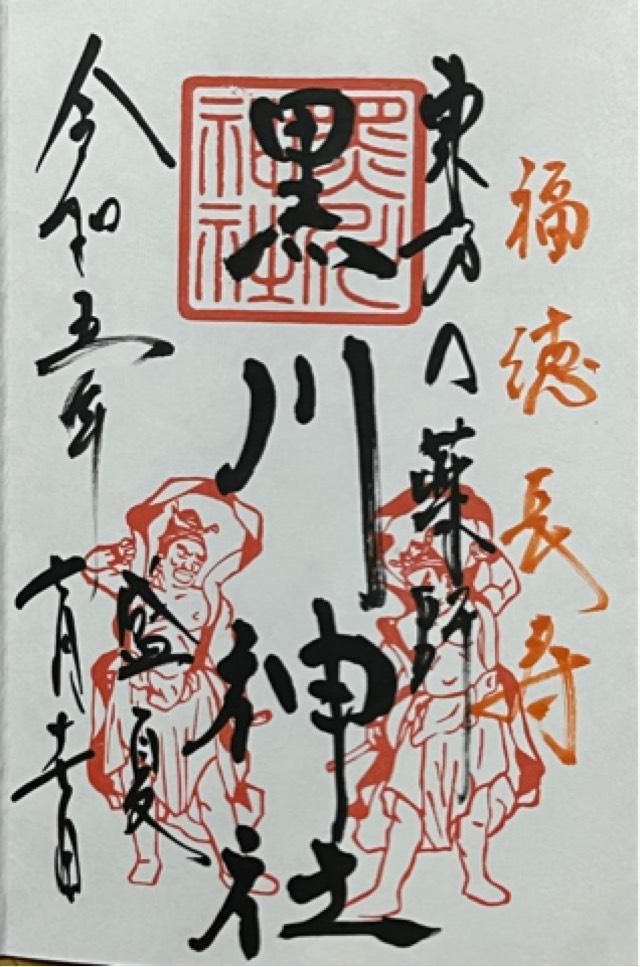 福徳長寿
東方の薬師
黒川神社
黒川神社
盛夏
令和五年
七月十七日